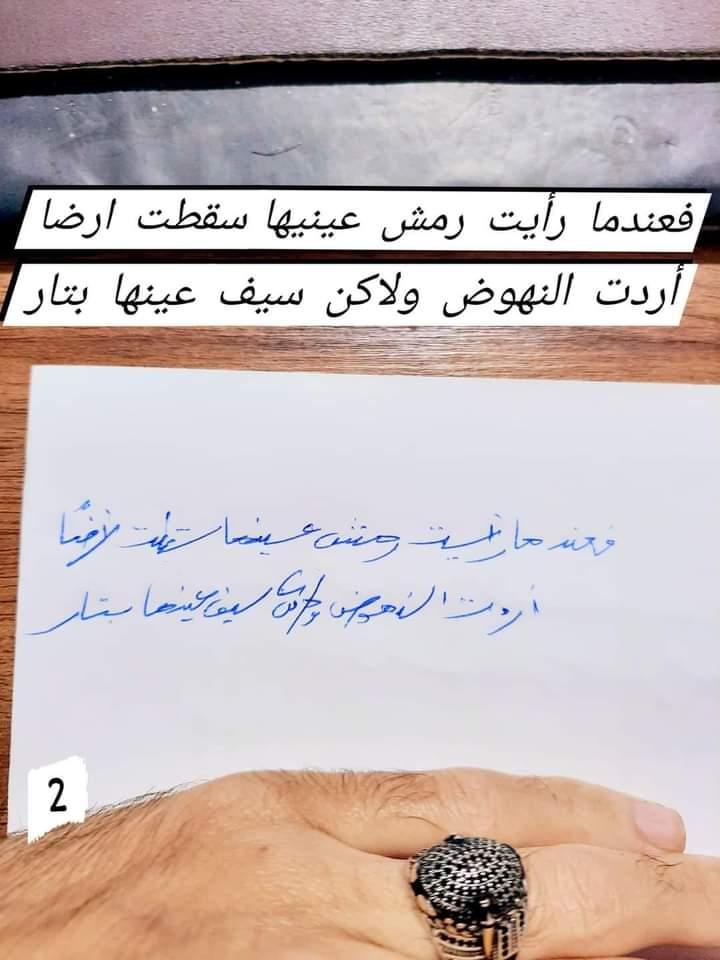 فعندما رأيت رمش عينيها سقطت ارضا
أردت النهوض ولاكن سيف عينها بتار
فعندما رأيت رمش عينها سقطت ارضًا
أردت النهوض ولاكن سيف عينها بتار
2